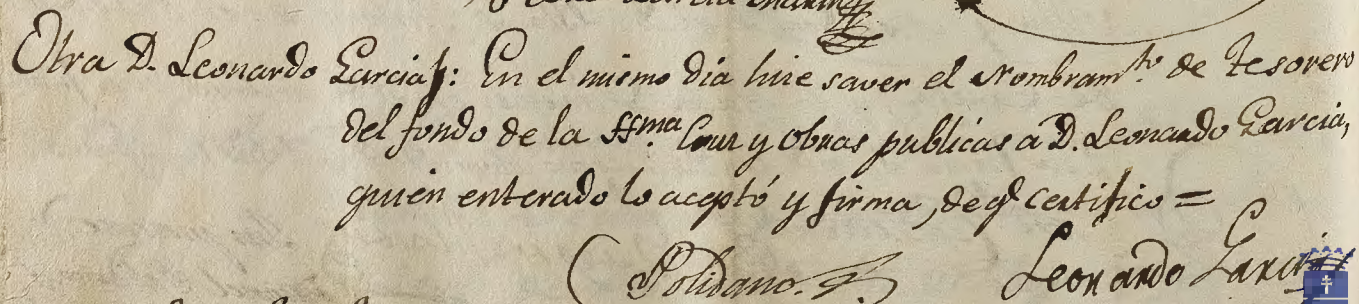 Otra D. Leonardo Garcia: En el mismo dia hice saver el Nombramto. de Tesorero
del fondo de la SSma. Cruz y Obras publicas a D. Leonardo Garcia,
quien enterado lo aceptó y firma, de q.e certifico =
Polidano. Leonardo Garcia